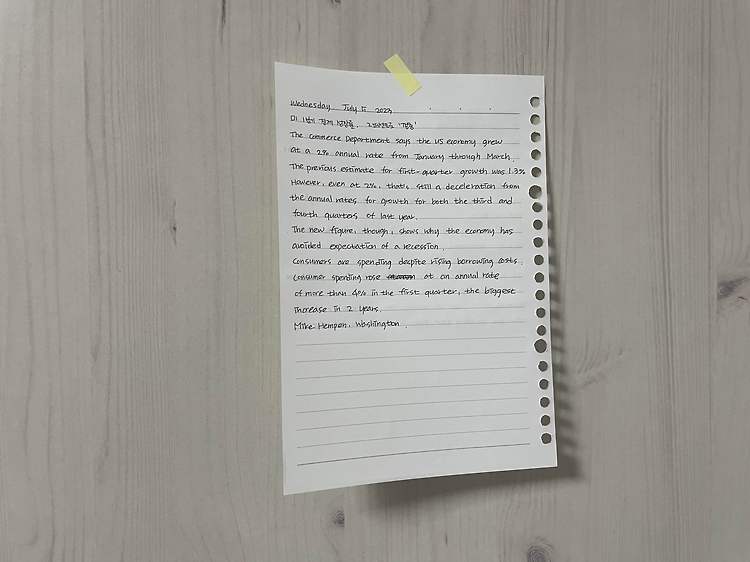 Wednesday July 11 2023
미 1분기 경제 성장률,
The Commerce Department says the US economy grew
at a 2% annual rate from January through March.
The previous estimate for first-quarter growth was 1.3%
However, even at 2%, that's still a deceleration from
the annual rates for growth for both the third and
fourth quarters of last year.
The new figure, though, shows why the economy has
avoided expectation of a recession.
Consumers are spending despite rising borrowing costs.
Consumer spending rose at an annual rate
of more than 4% in the first quarter, the biggest
increase in 2 years.
Mike Hempen, Washington.